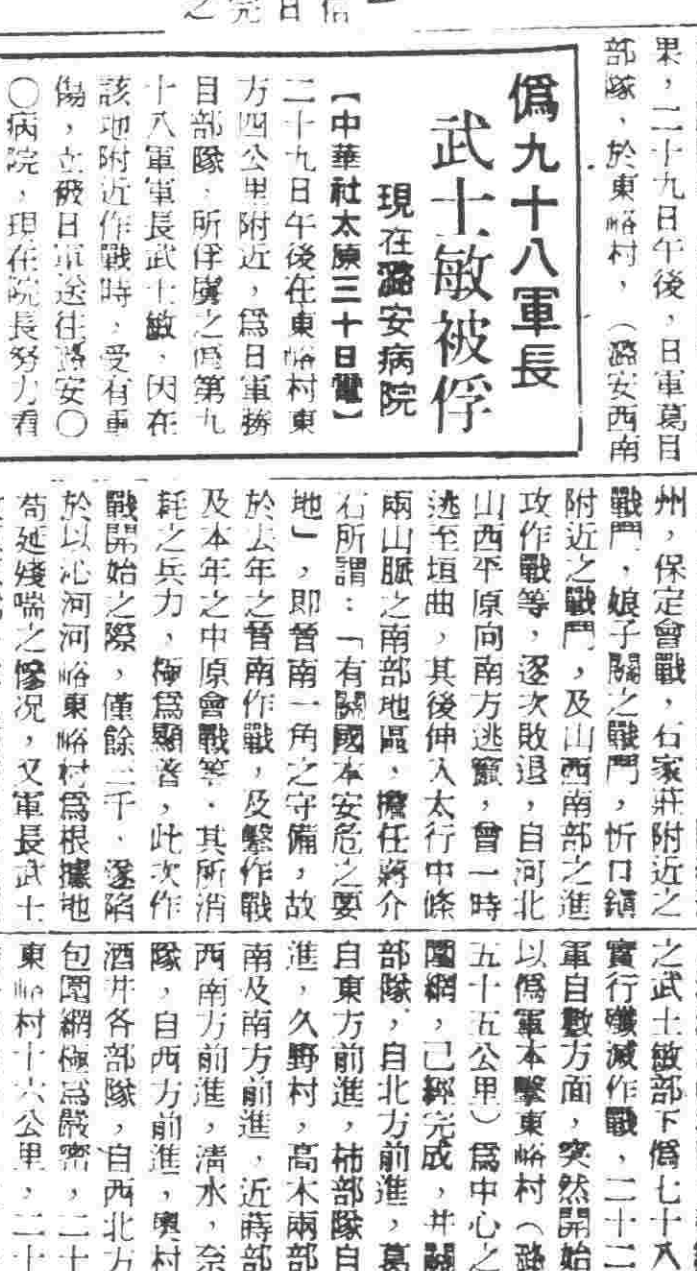 果，二十九日午後，日軍葛目
部隊，於東峪村，（潞安西南
僞九十八軍長
武士敏被俘
現在潞安病院
【中華社太原三十日電】
二十九日午後在東峪村東
方四公里附近，爲日軍勝
目部隊，所俘虜之僞第九
十八軍軍長武士敏，因在
該地附近作戰時，受有重
傷，立被日軍送往潞安〇
〇病院，現在院長努力看
州，保定會戰，石家莊附近之
戰鬥，娘子關之戰鬥，忻口鎭
附近之戰鬥，及山西南部之進
攻作戰等，逐次敗退，自河北
山西平原向南方逃竄，曾一時
逃至垣曲，其後伸入太行中條
兩山脈之南部地區，擔任蔣介
石所謂：「有關國本安危之要
地」，即晉南一角之守備，故
於去年之晉南作戰，及繫作戰
及本年之中原會戰等，其所消
耗之兵力，極爲顯著，此次作
戰開始之際，僅餘二千，遂陷
於以沁河河峪東峪村爲根據地
苟延殘喘之慘況，又軍長武士
之武士敏部下僞七十八
實行殲滅作戰，二十二
軍自數方面，突然開始
以僞軍本擊東峪村（潞
五十五公里）爲中心之
圍網，已經完成，井關
部隊，自北方前進，葛
自東方前進，柿部隊自
進，久野村，高木兩部
南及南方前進，近蒔部
西南方前進，清水，奈
隊，自西方前進，奧村
酒井各部隊，自西北方
包圍網極爲嚴密，二十
東峪村十六公里，二十